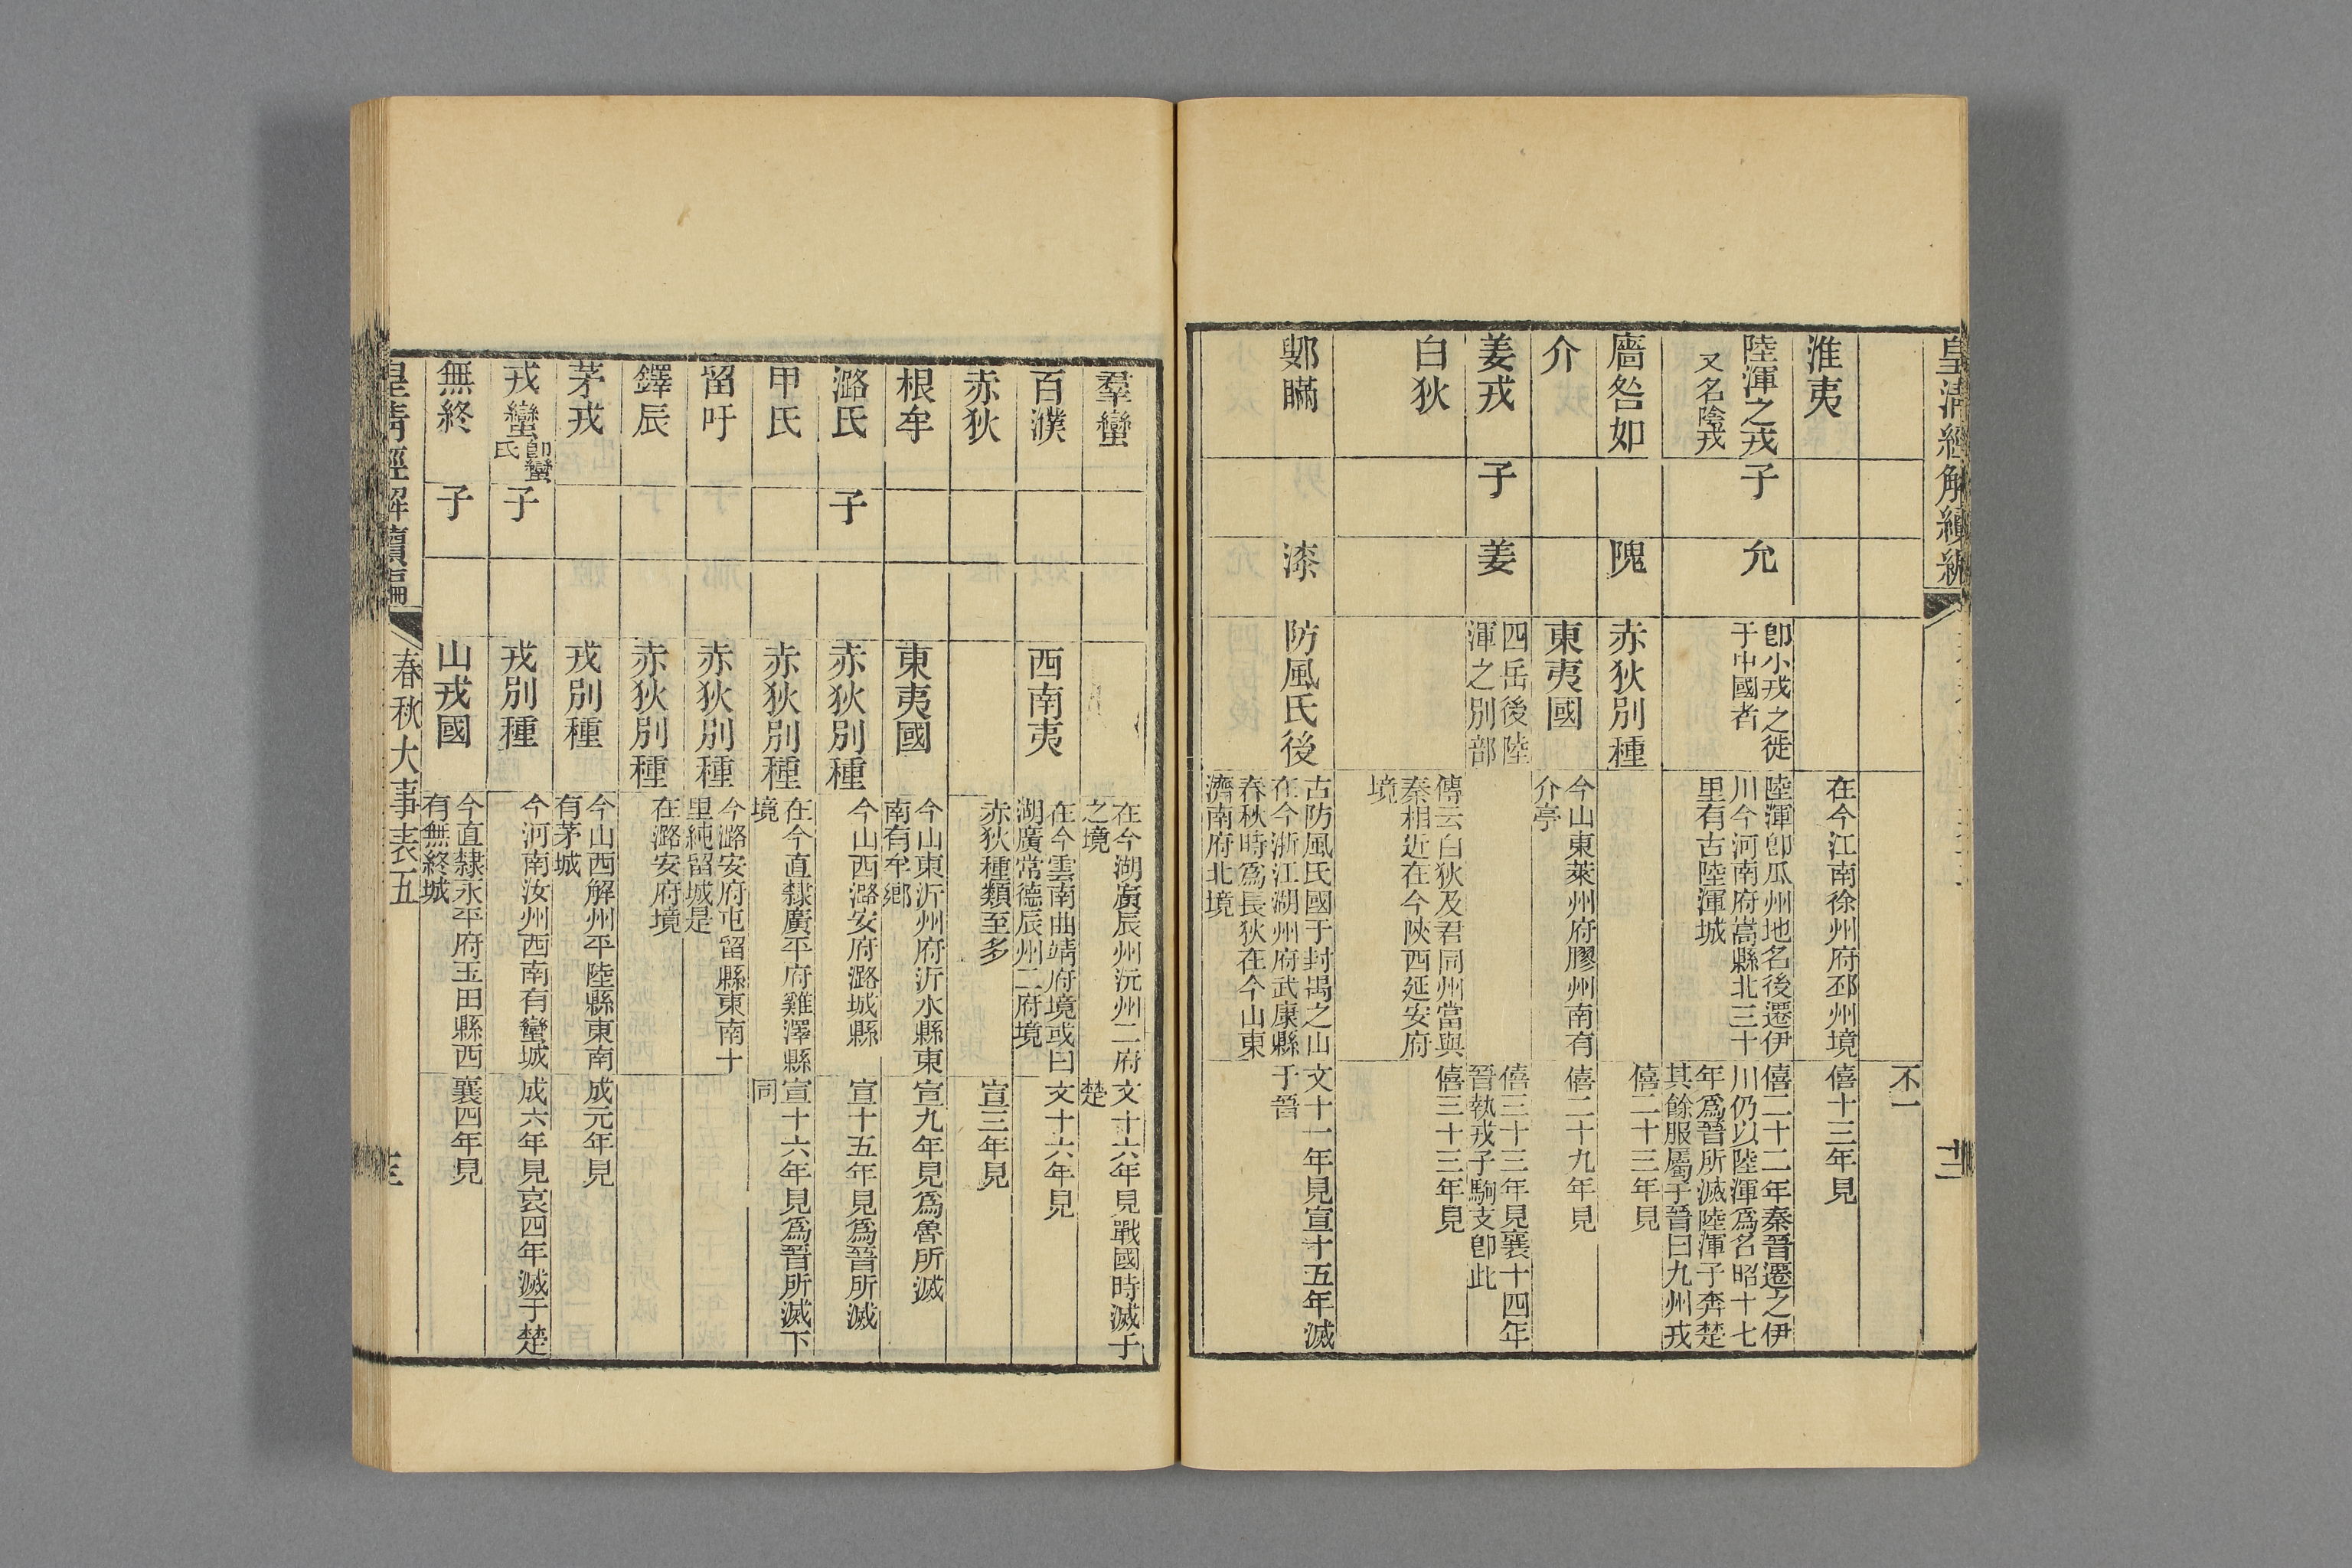 皇清經解續編
不一
淮夷
在今江南徐州府邳州境
僖十三年見
陸渾之戎
又名陰戎
子
允
卽小戎之徙
于中國者
陸渾卽瓜州地名後遷伊
川今河南府嵩縣北三十
里有古陸渾城
僖二十二年秦晉遷之伊
川仍以陸渾爲名昭十七
年爲晉所滅陸渾子奔楚
其餘服屬于晉曰九州戎
廧咎如
隗
赤狄別種
僖二十三年見
介
東夷國
今山東萊州府膠州南有
介亭
僖二十九年見
姜戎
子
姜
四岳後陸
渾之別部
僖三十三年見襄十四年
晉執戎子駒支卽此
白狄
傳云白狄及君同州當與
秦相近在今陝西延安府
境
僖三十三年見
鄋瞞
漆
防風氏後
古防風氏國于封禺之山
在今浙江湖州府武康縣
春秋時爲長狄在今山東
濟南府北境
文十一年見宣十五年滅
于晉
羣蠻
在今湖廣辰州沅州二府
之境
文十六年見戰國時滅于
楚
百濮
西南夷
在今雲南曲靖府境或曰
湖廣常德辰州二府境
文十六年見
赤狄
赤狄種類至多
宣三年見
根牟
東夷國
今山東沂州府沂水縣東
南有牟鄉
宣九年見爲魯所滅
潞氏
子
赤狄別種
今山西潞安府潞城縣
宣十五年見爲晉所滅
甲氏
赤狄別種
在今直隸廣平府雞澤縣
境
宣十六年見爲晉所滅下
同
留吁
赤狄別種
今潞安府屯留縣東南十
里純留城是
鐸辰
赤狄別種
在潞安府境
茅戎
戎別種
今山西解州平陸縣東南
有茅城
成元年見
戎蠻卽蠻
氏
子
戎別種
今河南汝州西南有蠻城
成六年見哀四年滅于楚
無終
子
山戎國
今直隸永平府玉田縣西
有無終城
襄四年見
皇清經解續編
春秋大事表五